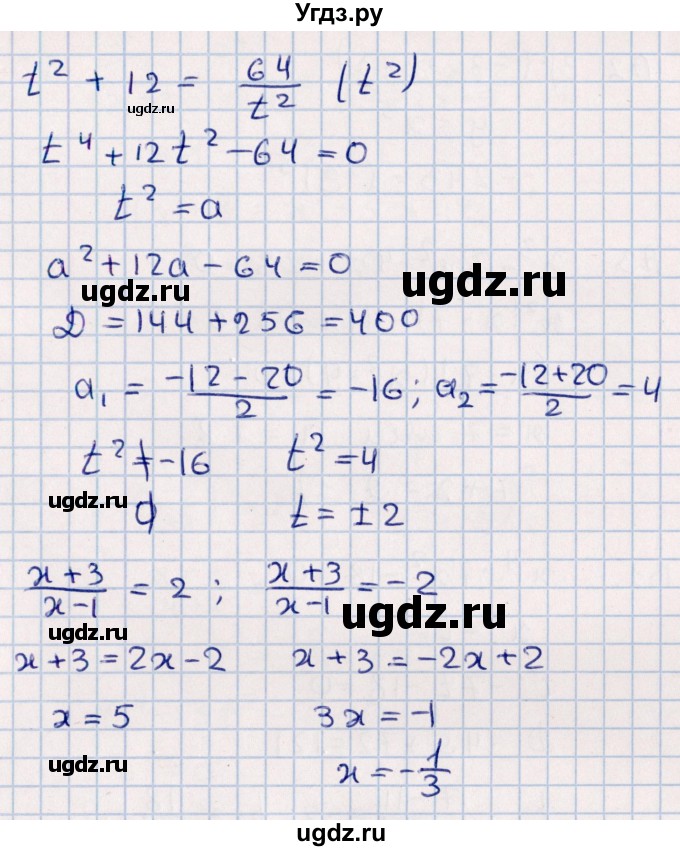 Угдз.ру
t² + 12 = 64/t² (t²)
ugdz.ru
t⁴ + 12t² - 64 = 0
t² = a
a² + 12a - 64 = 0
ugdz.ru ugdz.ru
D = 144 + 256 = 400
a₁ = (-12 - 20)/2 = -16; a₂ = (-12 + 20)/2 = 4
t² ≠ -16 t² = 4
ugdz.ru
∅ t = ± 2
(x + 3)/(x - 1) = 2; (x + 3)/(x - 1) = -2
ugdz.ru ugdz.ru
x + 3 = 2x - 2 x + 3 = -2x + 2
x = 5 3x = -1
ugdz.ru
x = -1/3
ugdz.ru